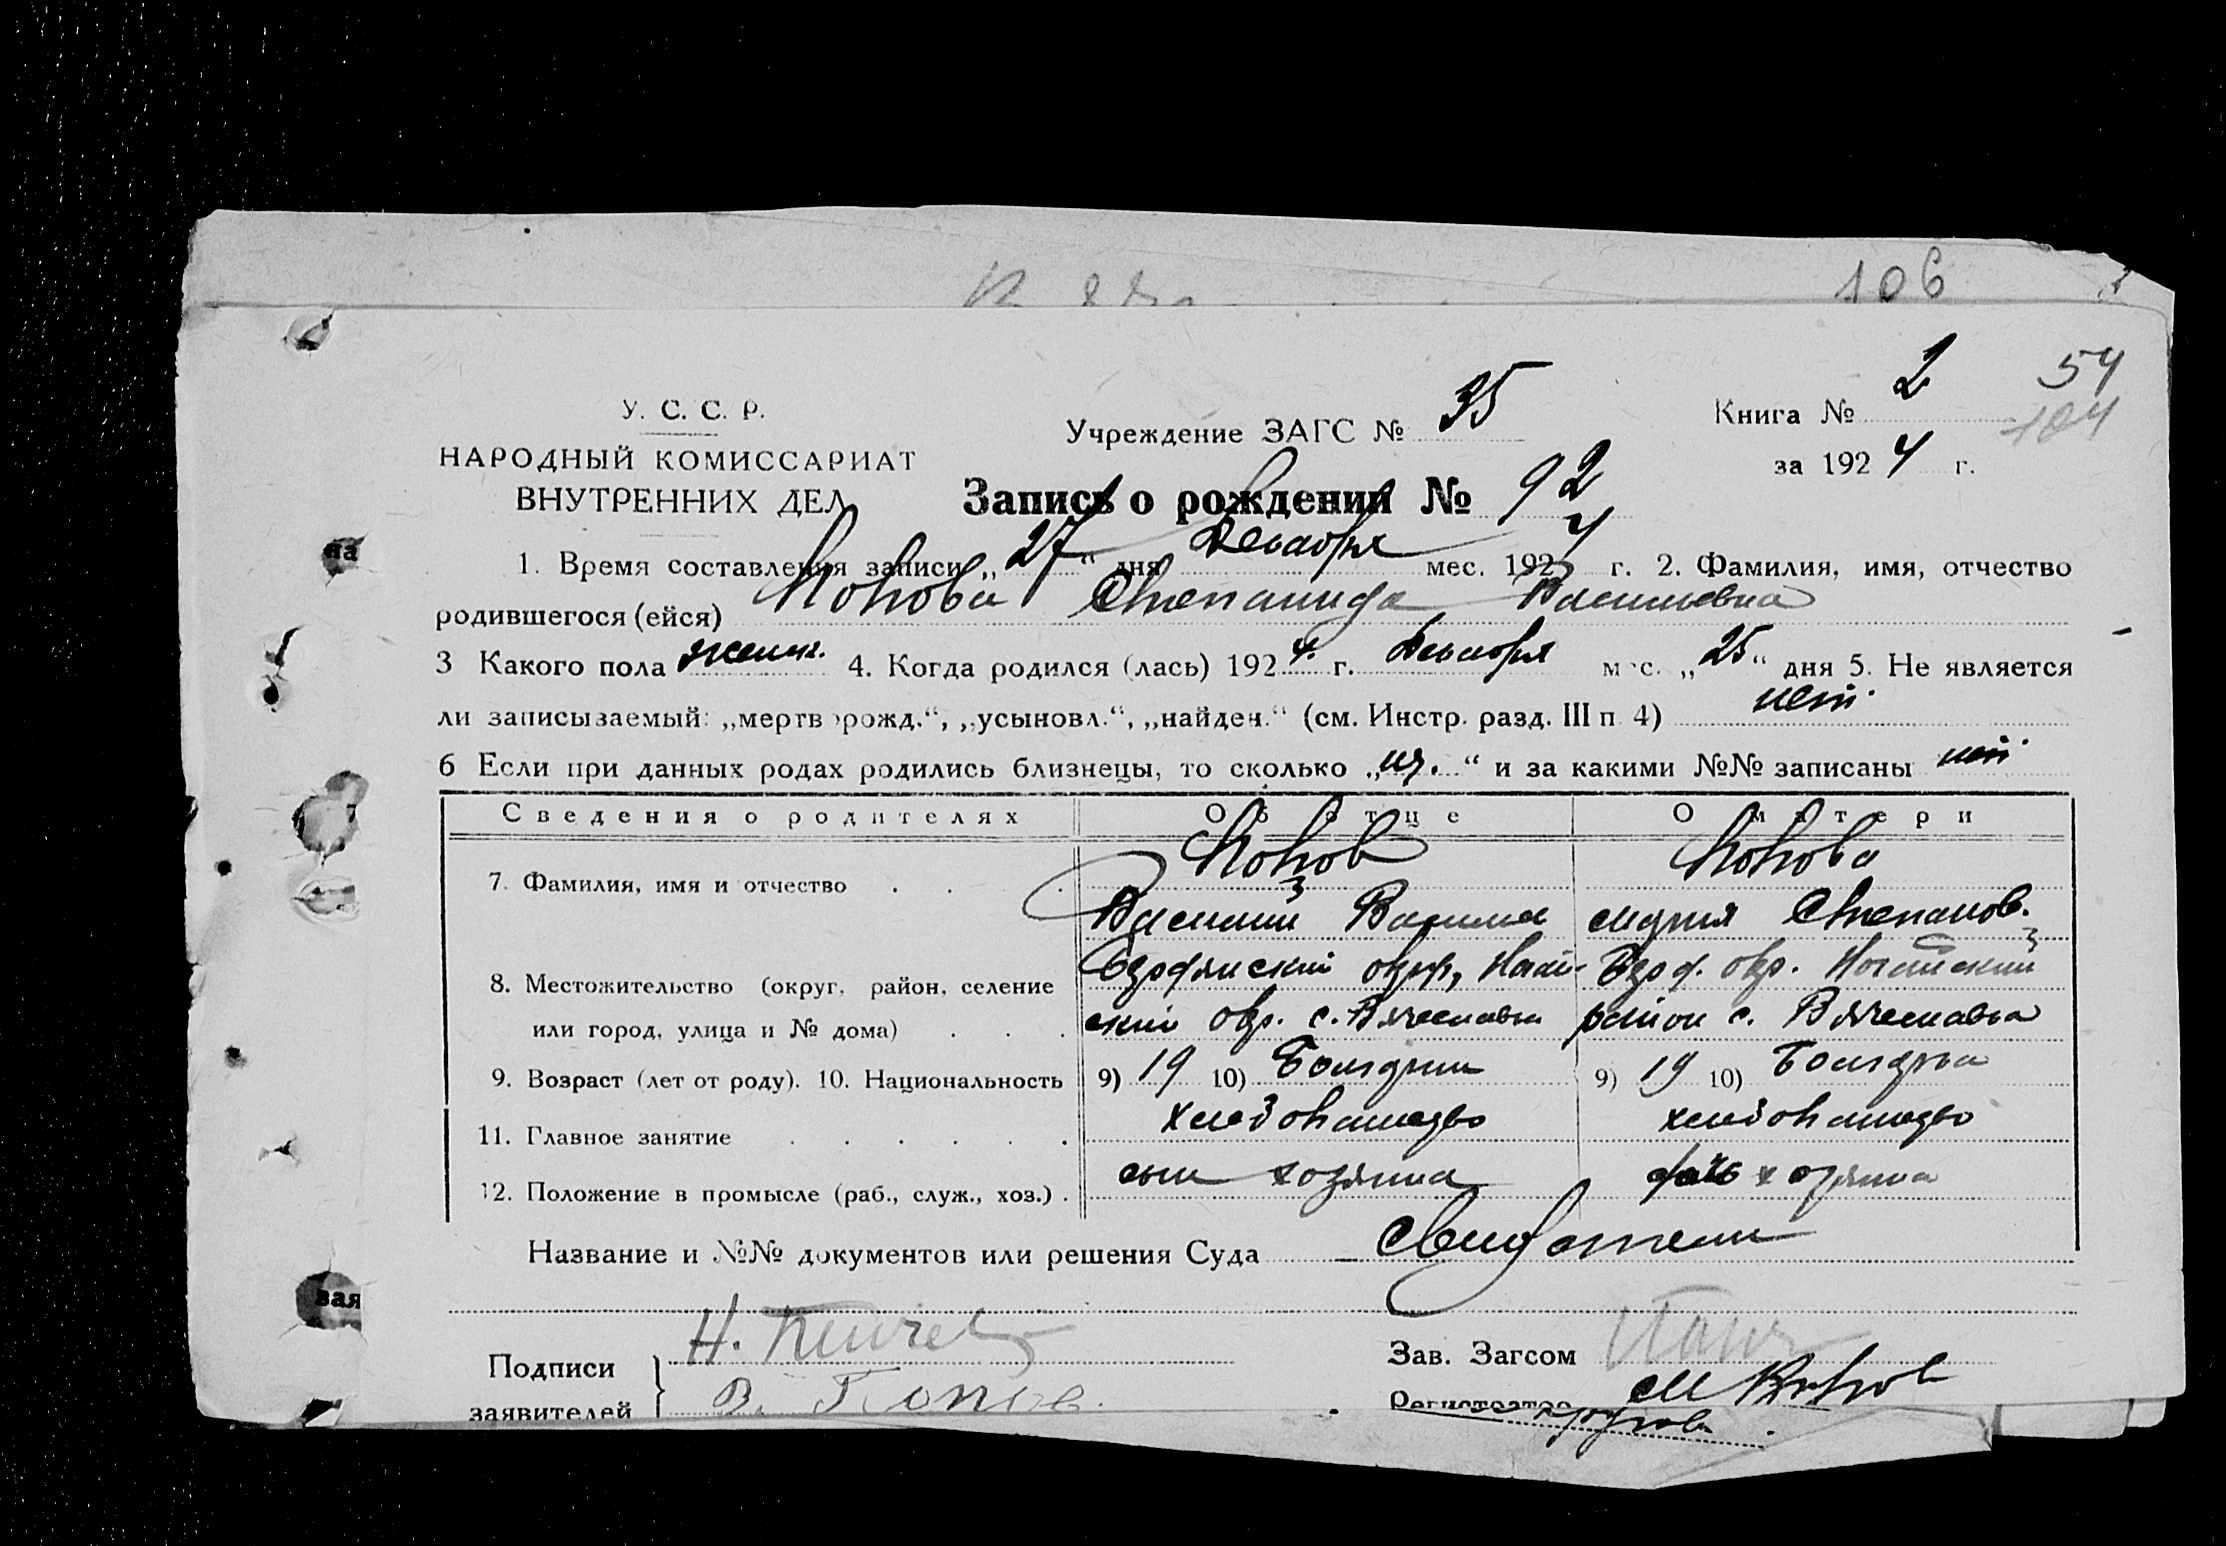 106
54
104
У. С. С. Р.
НАРОДНЫЙ КОМИССАРИАТ
ВНУТРЕННИХ ДЕЛ
Учреждение ЗАГС № 35
Книга № 2
за 1924 г.
Запись о рождении № 92
1. Время составления записи „27“ дня Декабря мес. 1924 г. 2. Фамилия, имя, отчество
родившегося (ейся) Попова Степанида Васильевна
3 Какого пола женск. 4. Когда родился (лась) 1924 г. Декабря мес. „25“ дня 5. Не является
ли записываемый: „мертворожд.“, „усыновл.“, „найден.“ (см. Инстр. разд. III п. 4) нет.
6 Если при данных родах родились близнецы, то сколько „ “ и за какими №№ записаны нет
Сведения о родителях О б отце О матери
7. Фамилия, имя и отчество Попов Попова
Василий Васильев Мария Степанов.
8. Местожительство (округ, район, селение Бердянский округ, Берд. окр. Ногайский
или город, улица и № дома) с. Вячеславка район с. Вячеславка
9. Возраст (лет от роду). 10. Национальность 9) 19 10) Болгарин 9) 19 10) Болгарка
11. Главное занятие хлебопашество хлебопашество
12. Положение в промысле (раб., служ., хоз.) сын хозяина дочь хозяина
Название и №№ документов или решения Суда Свидетели
Подписи
заявителей
Н.
В. Попов.
Зав. Загсом
Регистратор
на
зая